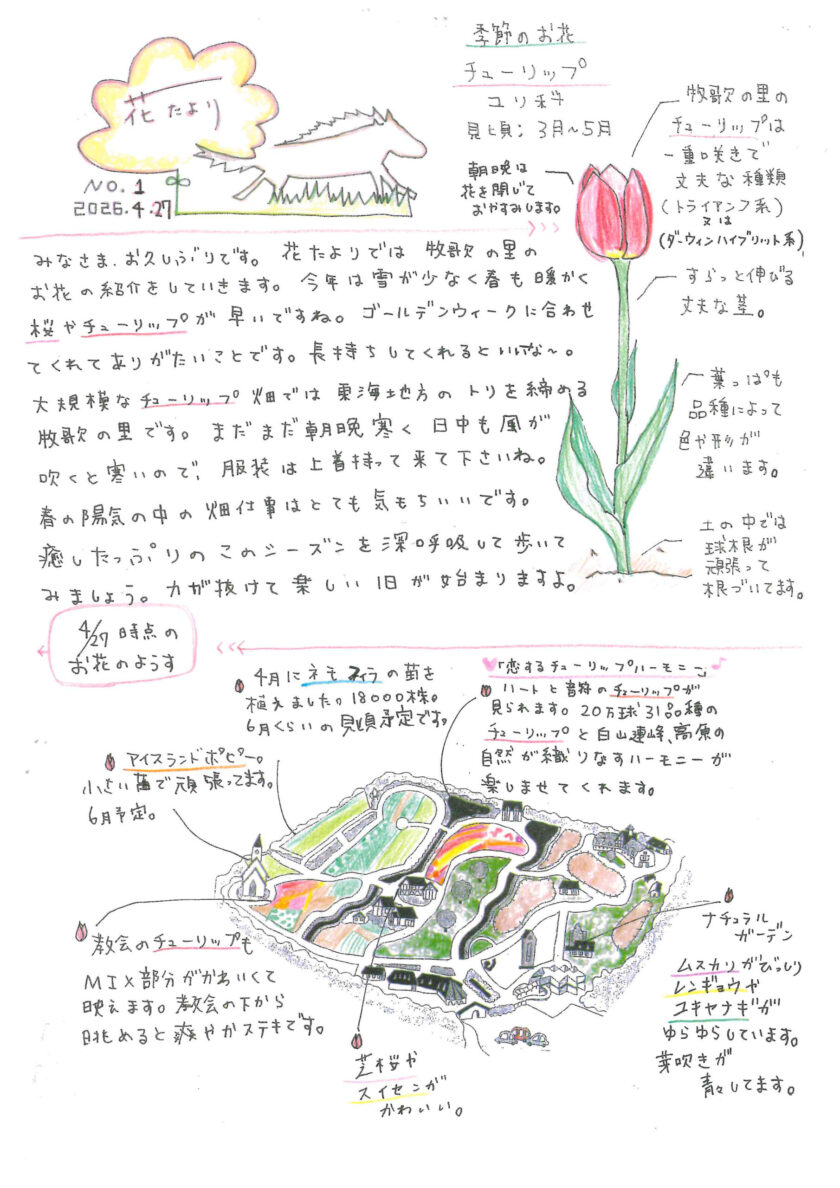 花たより
NO.1
2026.4.27
季節のお花
チューリップ
ユリ科
見頃：3月～5月
朝晩は
花を閉じて
おやすみします。
牧歌の里の
チューリップは
一重咲きで
丈夫な種類
(トライアンフ系)
又は
(ダーウィンハイブリット系)
すらっと伸びる
丈夫な茎。
葉っぱも
品種によって
色や形が
違います。
土の中では
球根が
頑張って
根づいてます。
みなさま、お久しぶりです。花たよりでは 牧歌の里の
お花の紹介をしていきます。今年は雪が少なく春も暖かく
桜やチューリップが早いですね。ゴールデンウィークに合わせ
てくれてありがたいことです。長持ちしてくれるといいな～。
大規模なチューリップ畑では 東海地方のトリを締める
牧歌の里です。まだまだ朝晩寒く 日中も風が
吹くと寒いので、服装は上着持って来て下さいね。
春の陽気の中の畑仕事はとても気もちいいです。
癒したっぷりのこのシーズンを深呼吸して歩いて
みましょう。力が抜けて楽しい1日が始まりますよ。
4/27時点の
お花のようす
4月にネモフィラの苗を
植えました♪18000株。
6月くらいの見頃予定です。
「恋するチューリップハーモニー」♪
ハートと音符のチューリップが
見られます。20万球31品種の
チューリップと白山連峰、高原の
自然が織りなすハーモニーが
楽しませてくれます。
アイスランドポピー。
小さい苗で頑張ってます。
6月予定。
教会のチューリップも
MIX部分がかわいくて
映えます。教会の下から
眺めると爽やかステキです。
芝桜や
スイセンが
かわいい。
ナチュラル
ガーデン
ムスカリがびっしり
レンギョウや
ユキヤナギが
ゆらゆらしています。
芽吹きが
青々してます。